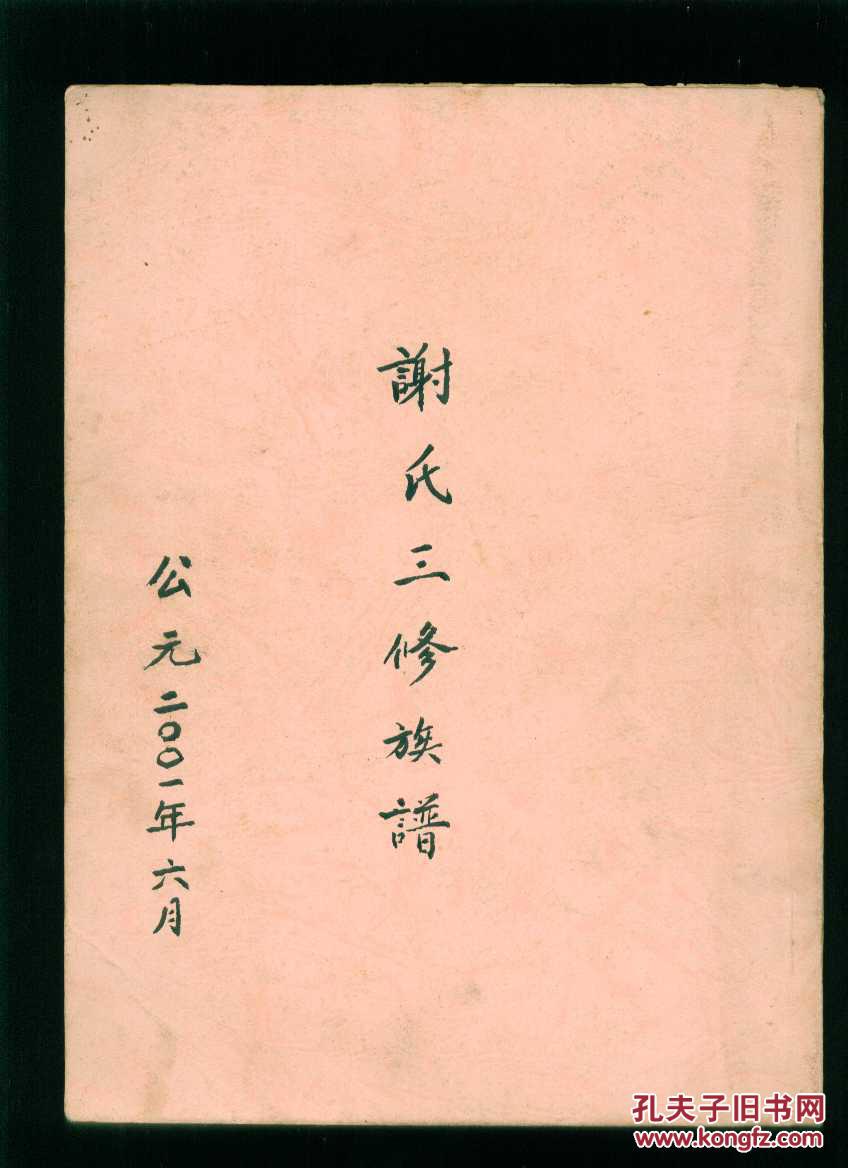 謝氏三修族譜
公元二〇〇一年六月
孔夫子旧书网
www.kongfz.com